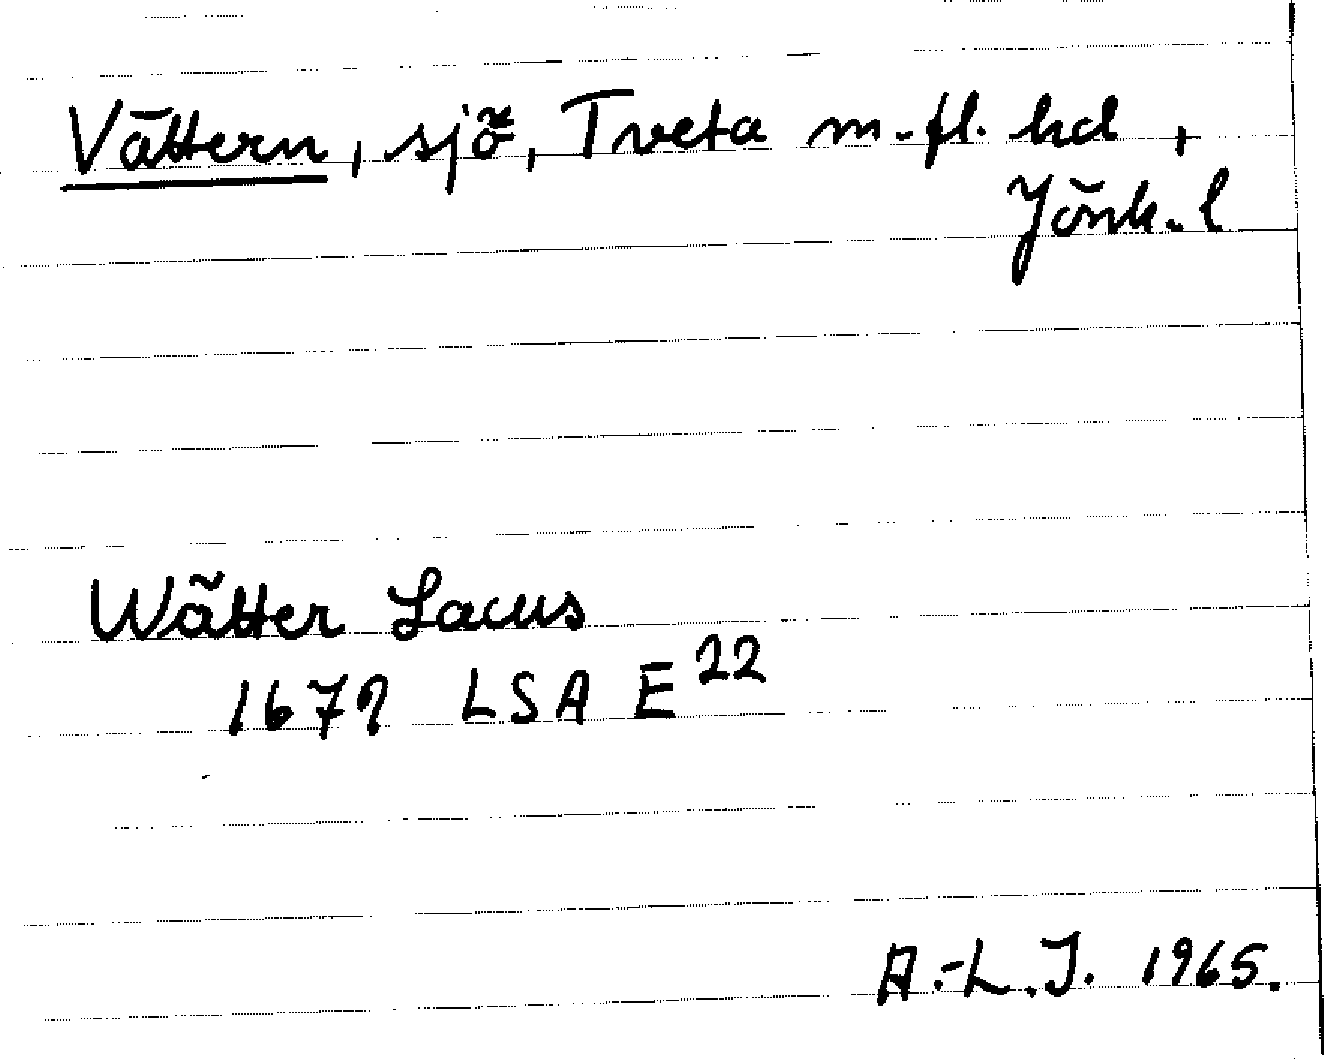 Vättern, sjö, Tveta m.fl. hd,
Jönk. l
Wätter Lacus
1679 LSA E 22
A.-L. J. 1965.